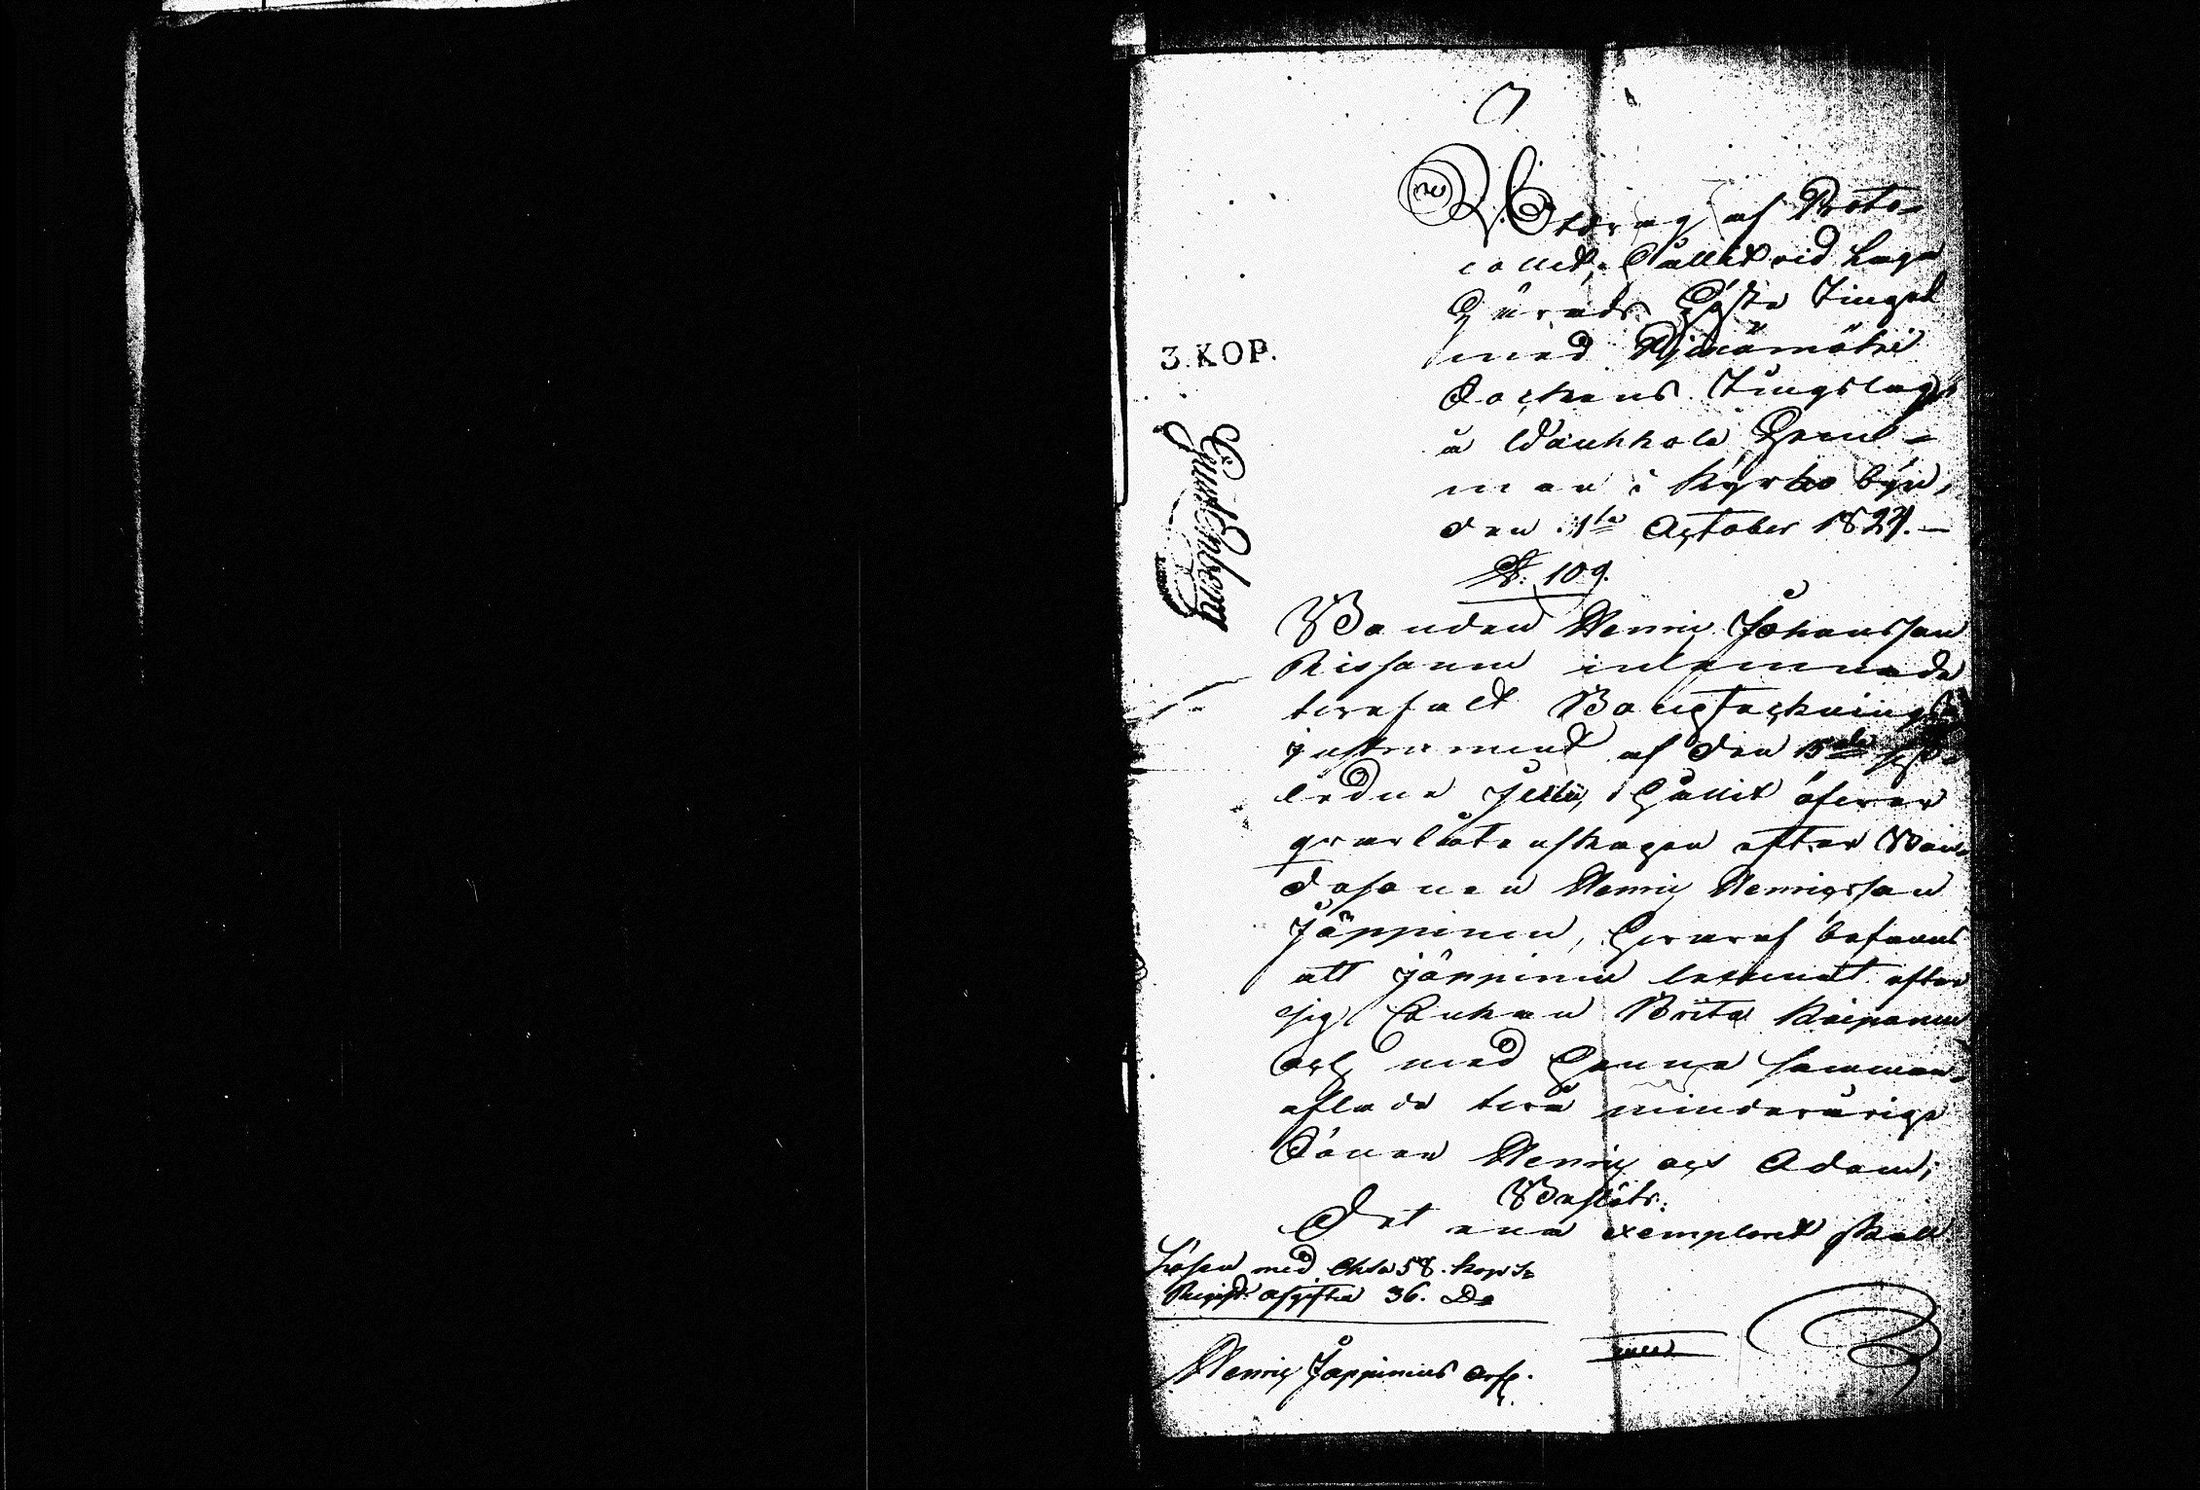 7
Utdrag af Proto-
collet, hållet vid Laga
Härads Höste Tinget
med Pijelax
Sockens Tingslag
å Waukkola Hem-
man i Kyrko byn,
den 1ta October 1824.-
§. 109.
3.KOP.
Bonden Henric Johansson
Rissanen inlemnade
tvefalt Boupteckning
instrument af den 15de sist-
ledne Julii, hållit öfver
qvarlåtenskapen efter Bon-
desonen Henric Henricsson
Jäppinen, hvaraf befans
att Jäppinen lemnat efter
sig Enkan Brita Kaipanen
och med henne samman-
aflade två minderåriga
Söner Henric och Adam;
Beslöts:
Det ena exemplaret skall
Lösen med Cha 58. kop. S.
Regist. afgiften 36. Do
Henric Jäppinens Arfv.